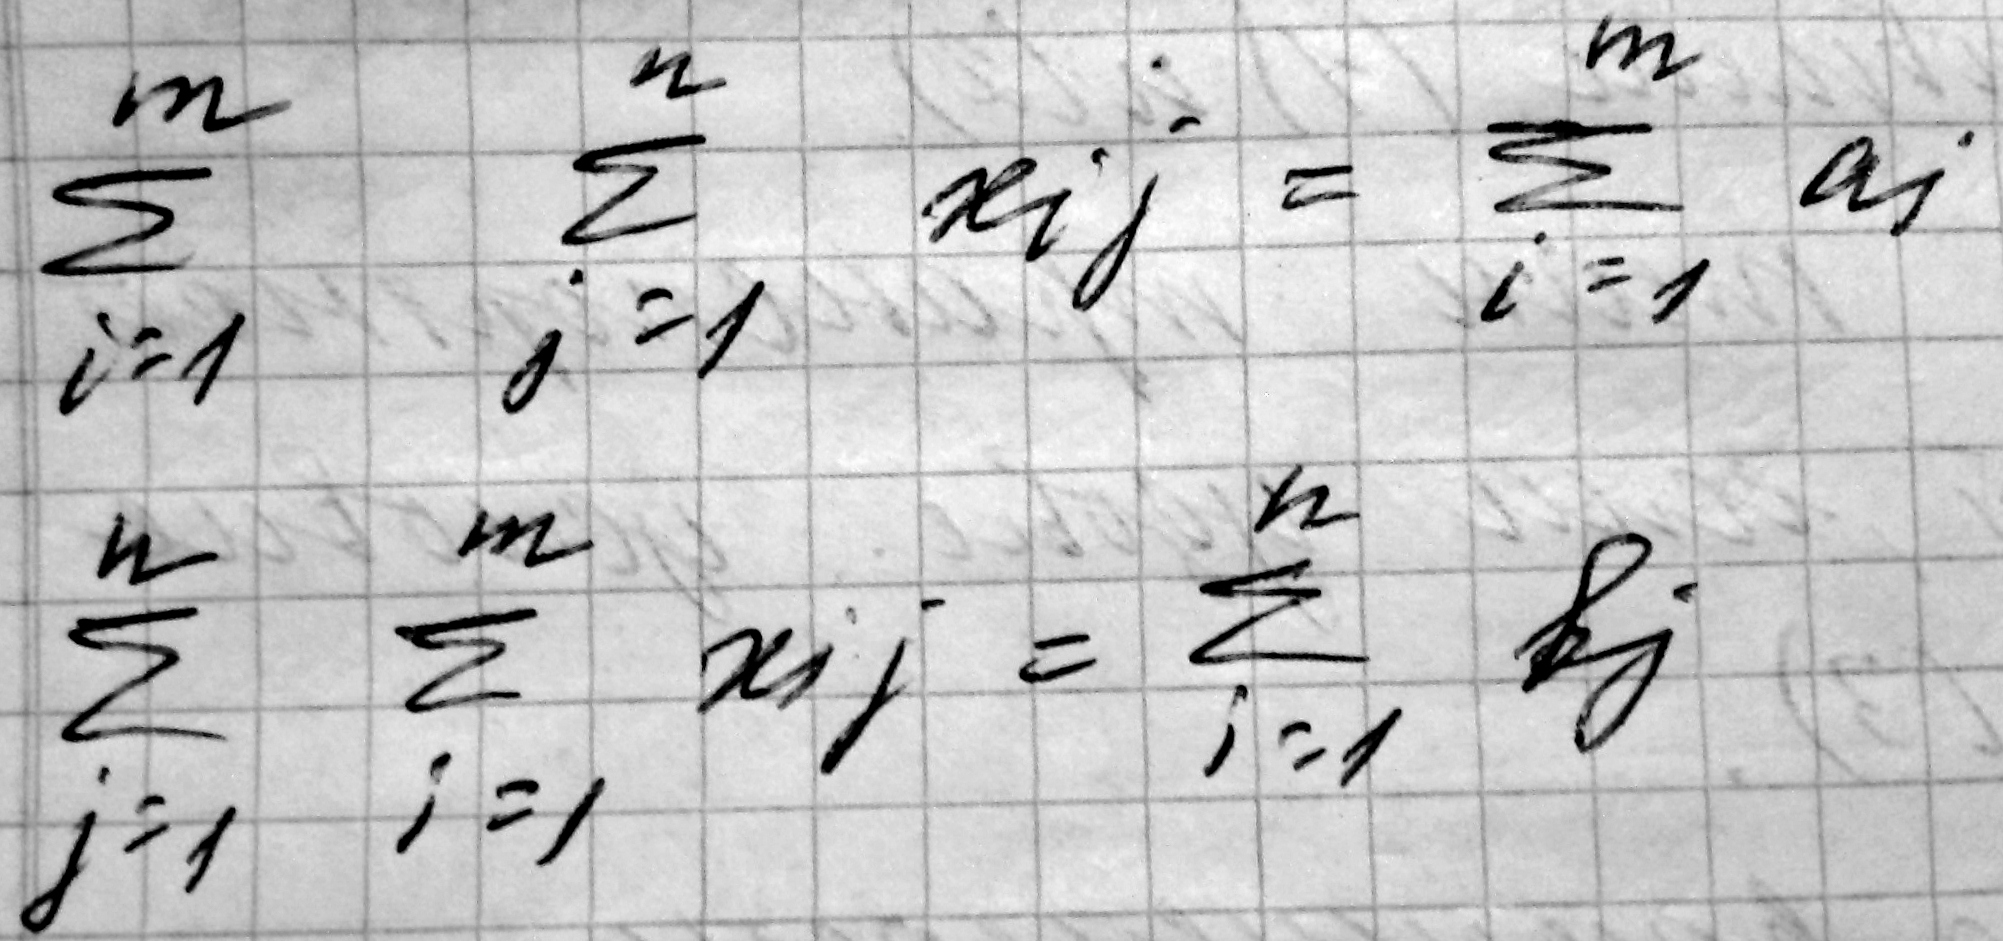 $\sum_{i=1}^{m} \sum_{j=1}^{n} x_{ij} = \sum_{i=1}^{m} a_j$
$\sum_{j=1}^{n} \sum_{i=1}^{m} x_{ij} = \sum_{i=1}^{n} b_j$